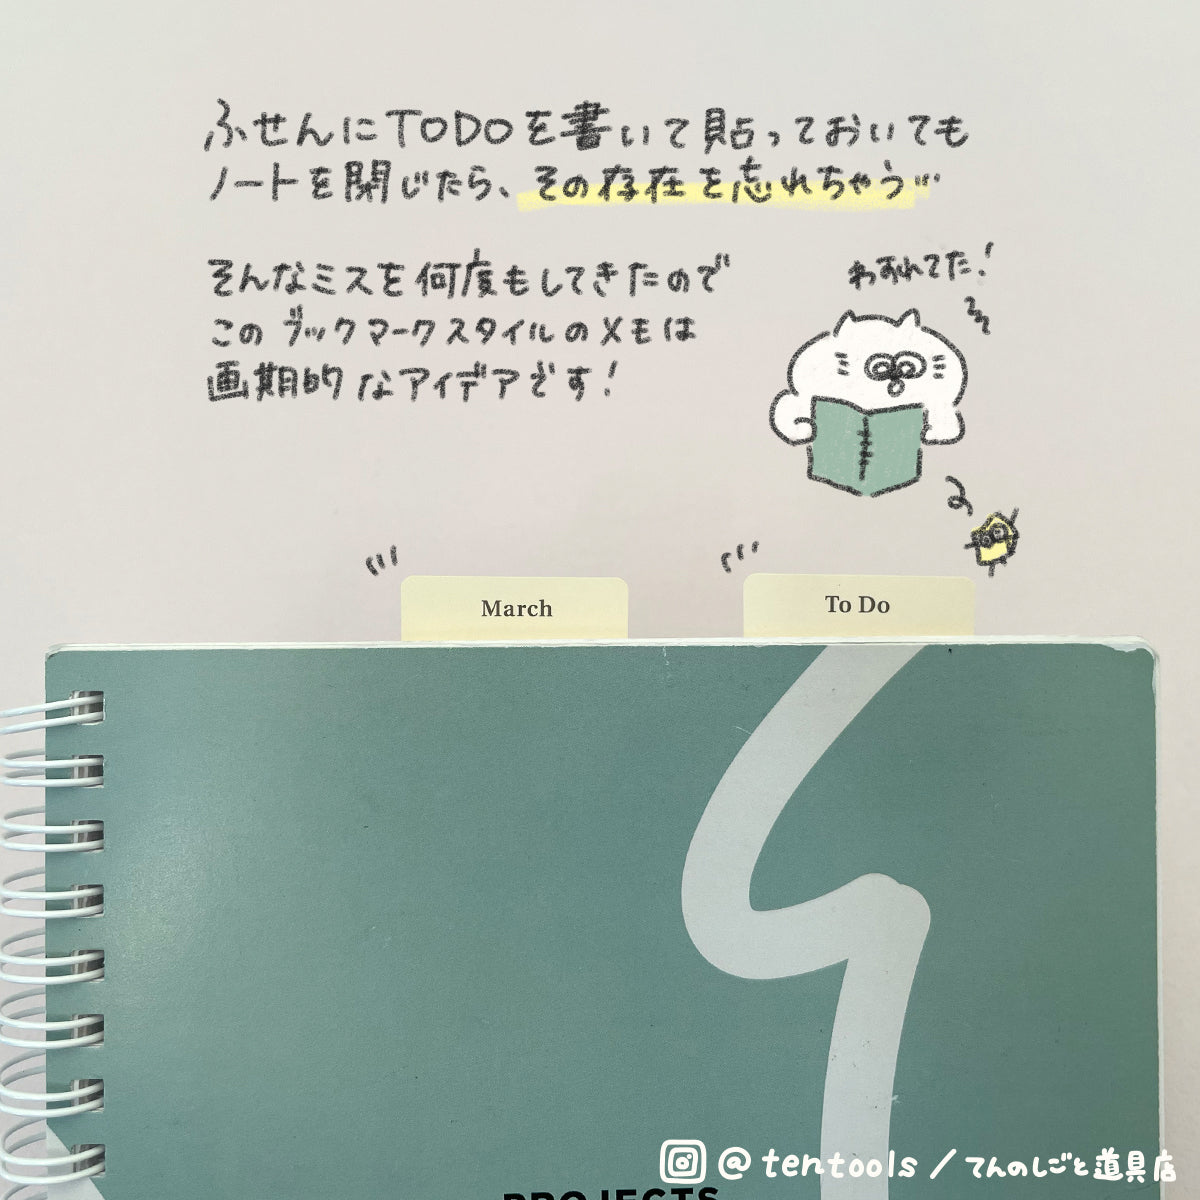 ふせんにTODOを書いて貼っておいても
ノートを閉じたら、その存在を忘れちゃう…
そんなミスを何度もしてきたので
このブックマークスタイルのメモは
画期的なアイデアです！
わすれてた！
March
To Do
PROJECTS
@tentools／てんのしごと道具店